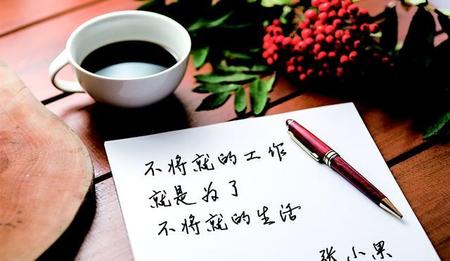 不将就的工作
就是为了
不将就的生活
张小果